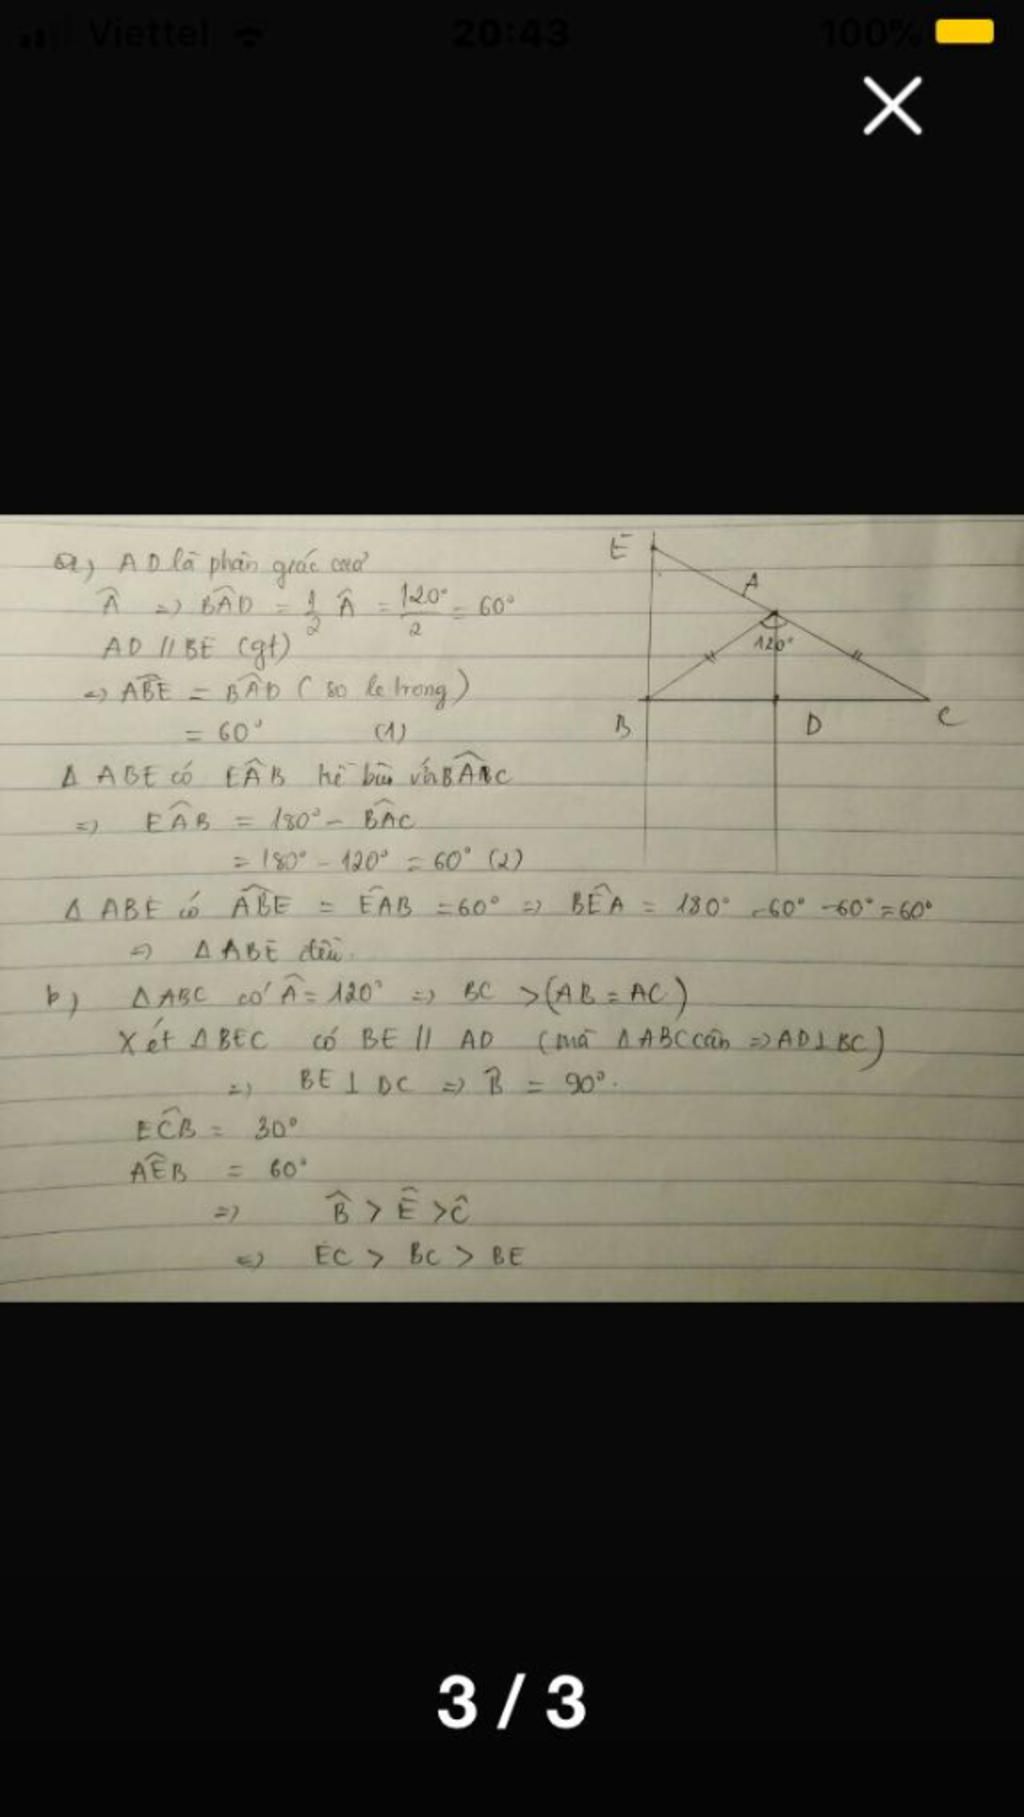 Viettel
20:43
100%
a) AD là phân giác của
Â => BÂD = 1/2 Â = 120°/2 = 60°
AD // BE (gt)
=> ABE = BÂD (so le trong)
= 60° (1)
Δ ABE có EÂB kề bù với BÂC
=> EÂB = 180° - BÂC
= 180° - 120° = 60° (2)
Δ ABE có ABE = EÂB = 60° => BÊA = 180° - 60° - 60° = 60°
=> Δ ABE đều.
b) ΔABC có Â = 120° => BC > (AB = AC)
Xét ΔBEC có BE // AD (mà ΔABC cân => AD⊥BC)
=> BE ⊥ DC => B̂ = 90°.
EĈB = 30°
AÊB = 60°
=> B̂ > Ê > Ĉ
=> EC > BC > BE
E
A
120°
B
D
C
3 / 3